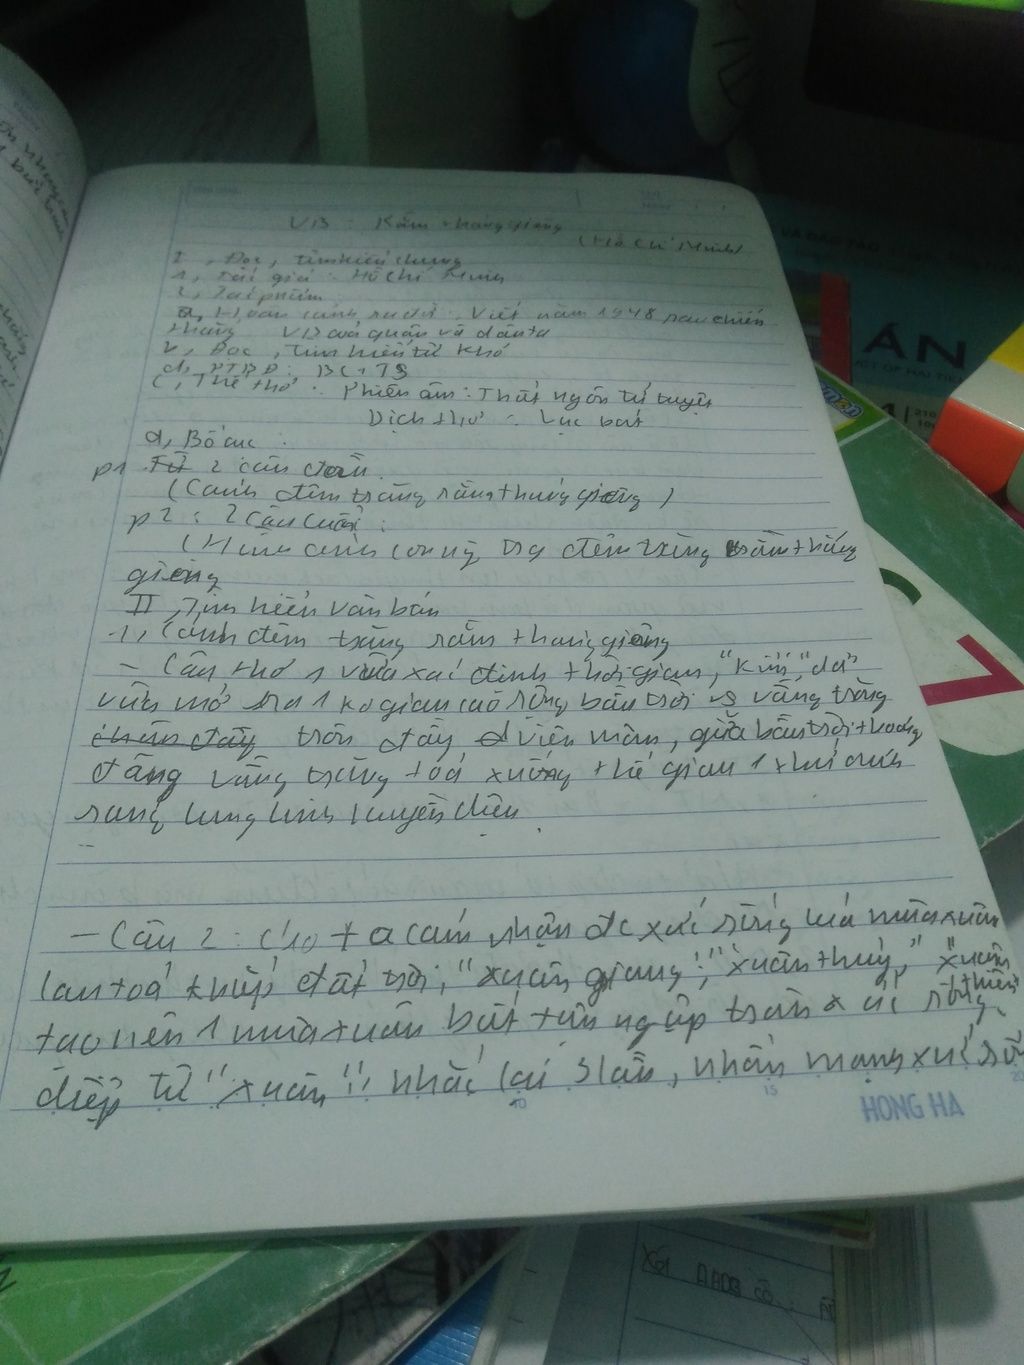 VB: Rằm tháng giêng
(Hồ Chí Minh)
I, Đọc, tìm hiểu chung
1, Tác giả: Hồ Chí Minh
2, Tác phẩm
a, Hoàn cảnh ra đời: Viết năm 1948 sau chiến
thắng VB của quân và dân ta
b, Đọc, tìm hiểu từ khó
d, PTBĐ: BC+TS
c, Thể thơ: Phiên âm: Thất ngôn tứ tuyệt
Dịch thơ: Lục bát
d, Bố cục:
p1 2 câu đầu.
(Cảnh đêm trăng rằm tháng giêng)
p2: 2 câu cuối:
(Hình ảnh con ng đêm trăng rằm tháng
giêng
II, Tìm hiểu văn bản
1, Cảnh đêm trăng rằm tháng giêng
- Câu thơ 1 vừa xác định thời gian, "Kim" "dạ"
vừa mở ra 1 ko gian cao rộng bầu trời vs vầng trăng
tròn đầy viên mãn, giữa bầu trời
vầng trăng toả xuống thế gian 1 thứ ánh
sang lung linh huyền diệu.
- Câu 2: cho ta cảm nhận đc xức sống của mùa xuân
lan toả khắp đất trời, "xuân giang", "xuân thuỷ," "xuân
thiên"
tạo nên 1 mùa xuân bất tận ngập tràn xức sống,
điệp từ "xuân" nhắc lại 3 lần, nhấn mạnh xức số
10
15
20
HONG HA
VÀ ĐÀO TẠO
ÁN
1